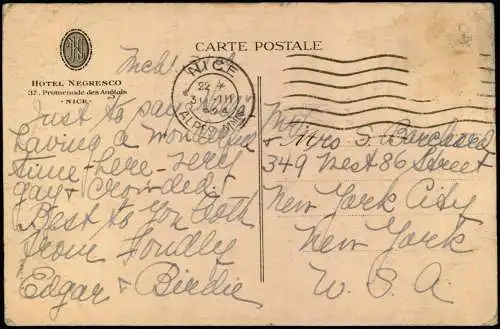 CARTE POSTALE
HOTEL NEGRESCO
37, Promenade des Anglais
· NICE ·
NICE
ALPES
Just to say
having a wonderful
time - here - very
gay & crowded.
Best to you both
from Fondly
Edgar & Birdie
Mr
& Mrs S.
349 West 86 Street
New York City
New York
U.S.A.